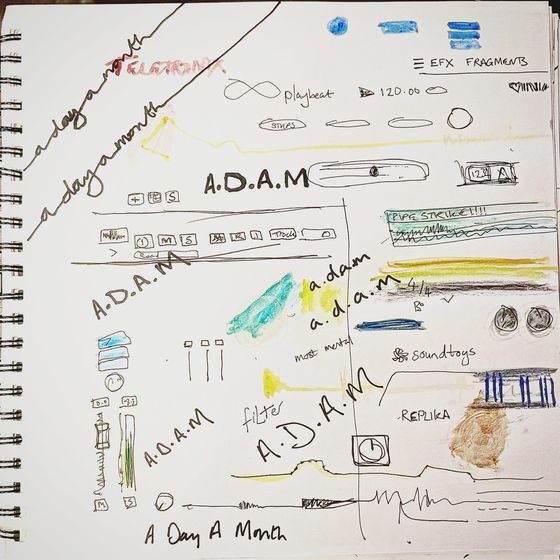 a day a month
TELETRONIX
EFX FRAGMENTS
a day a month
playbeat
120.00
STEPS
A.D.A.M
123 A
+ S
PIPE STRIKE!!!!
I M S R I Track
A.D.A.M
a.dam
a.d.a.m
4/4
most mental
soundtoys
filter
A.D.A.M
REPLIKA
A.D.A.M
M S
A Day A Month